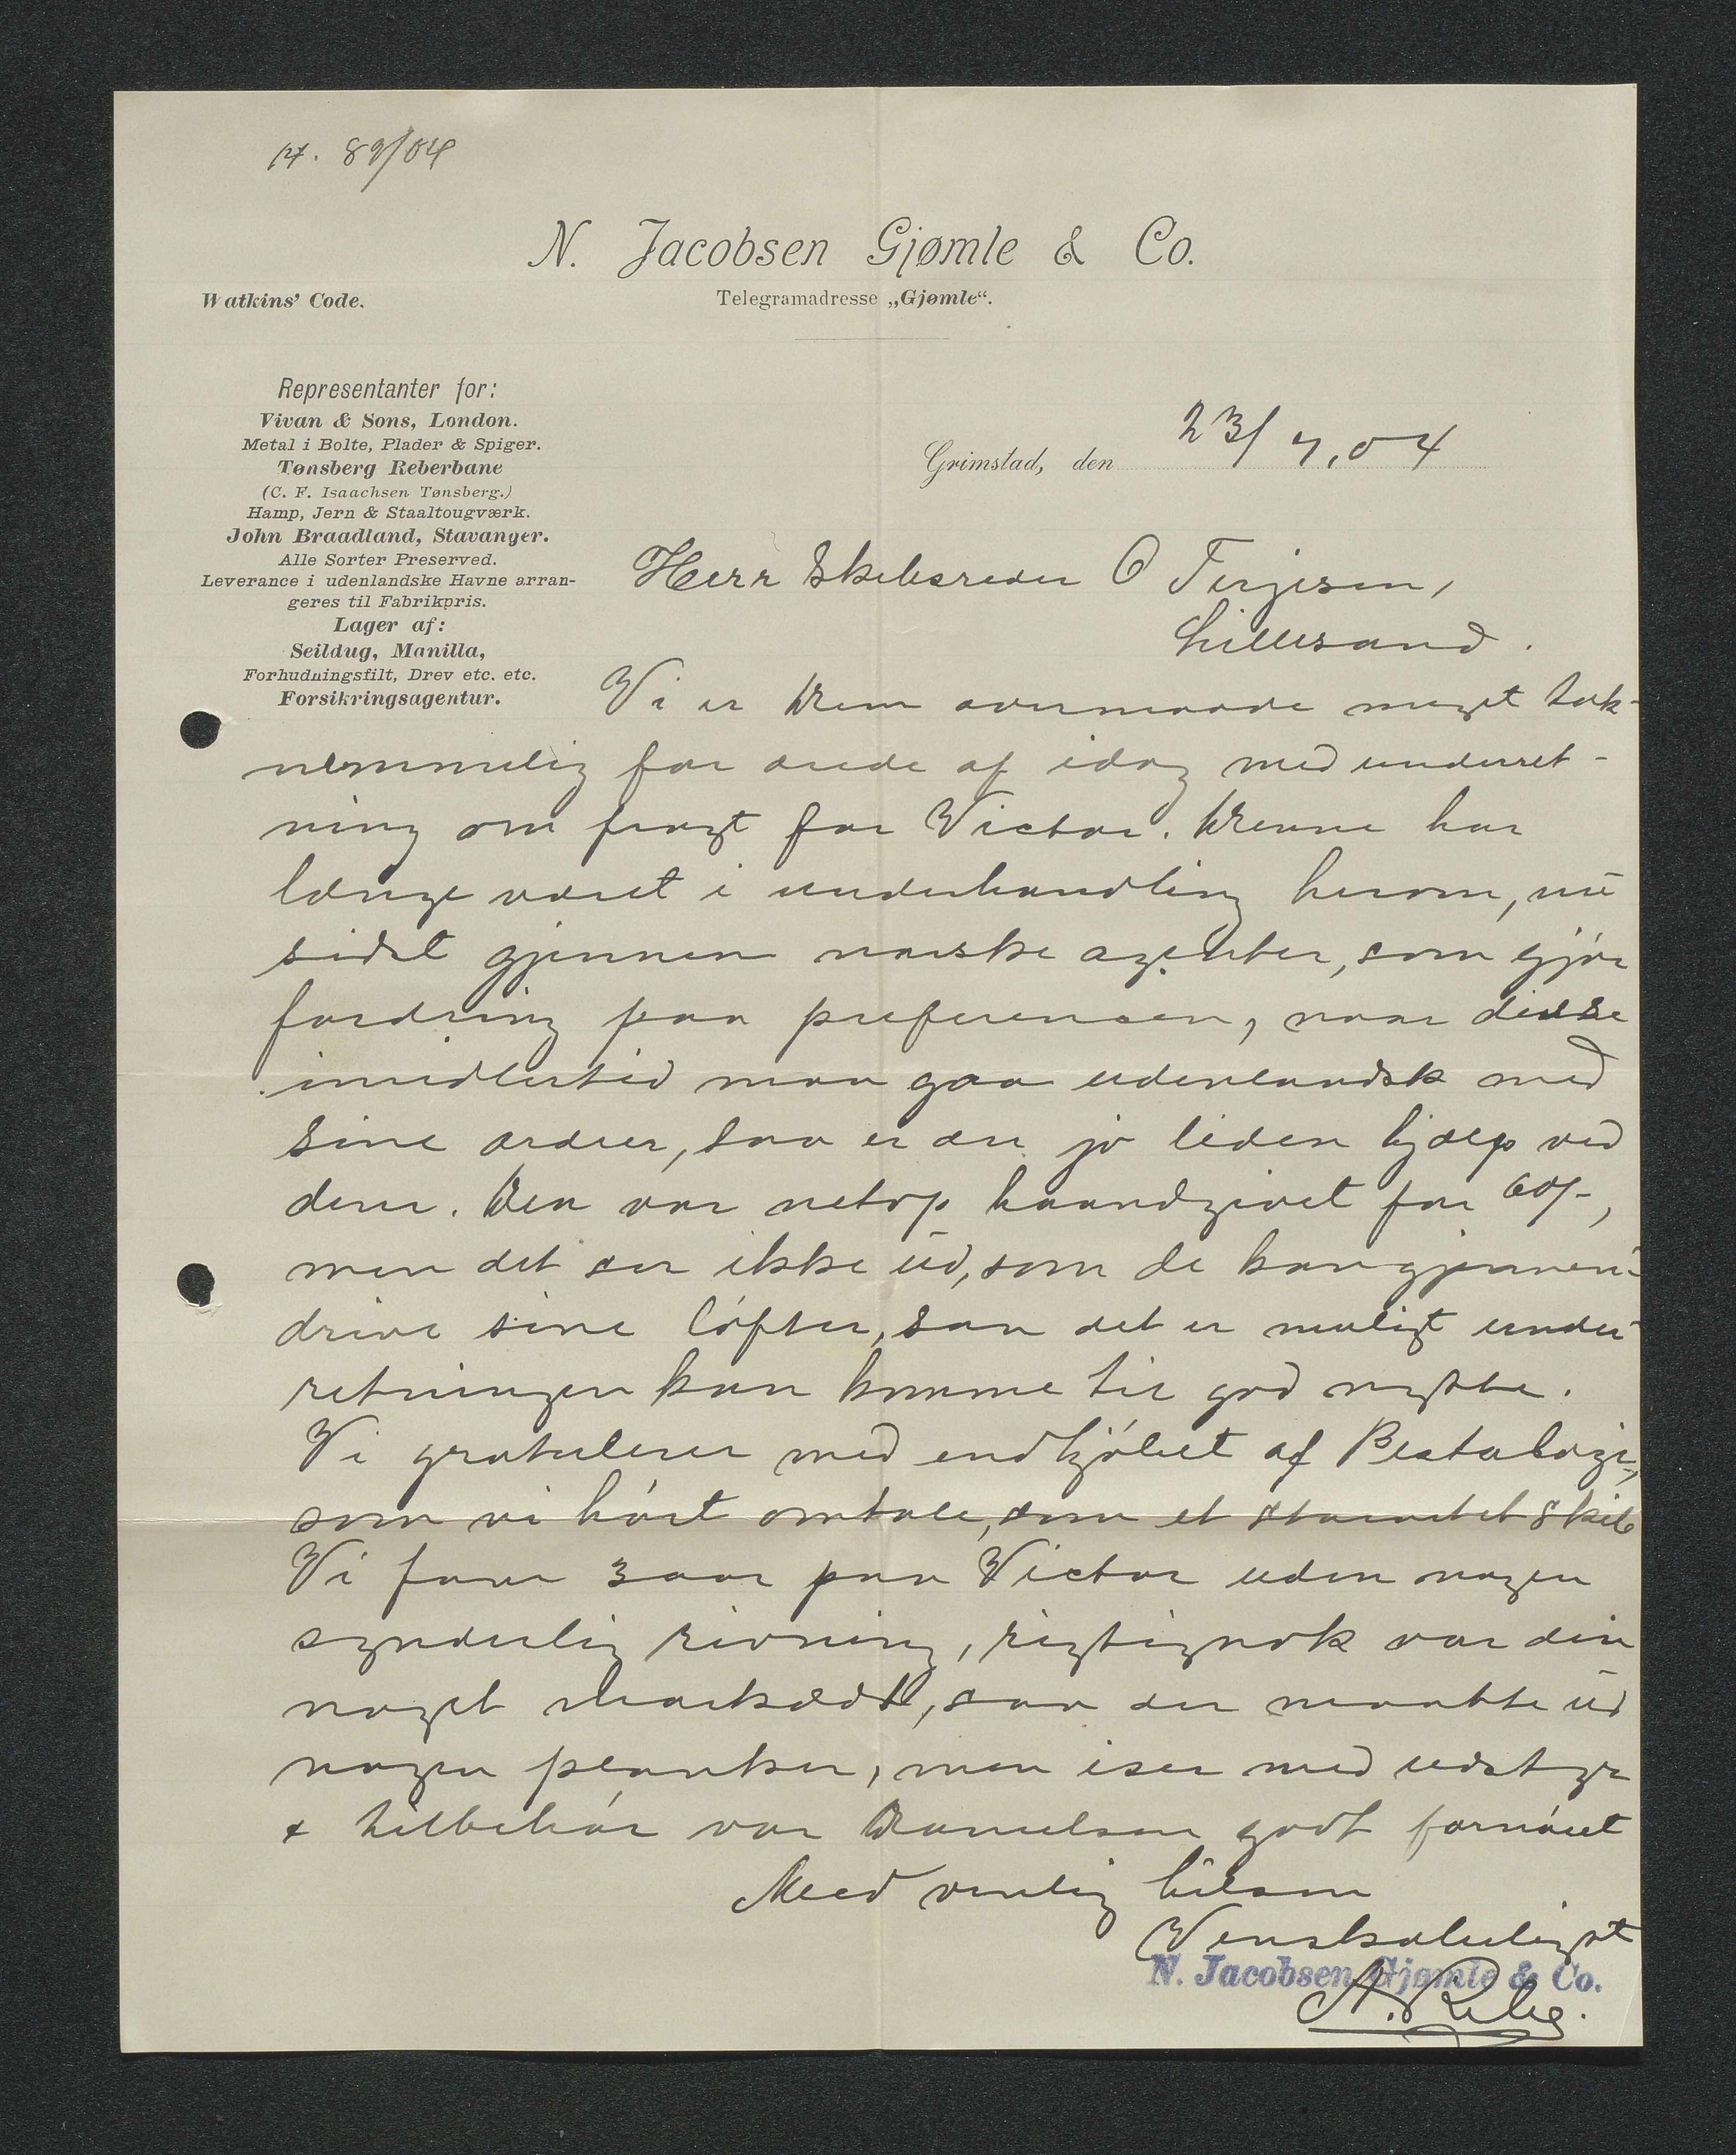 14. 89/04
N. Jacobsen Gjømle & Co.
Watkins' Code.
Telegramadresse „Gjømle“.
Representanter for:
Vivan & Sons, London.
Metal i Bolte, Plader & Spiger.
Tønsberg Reberbane
(C. F. Isaachsen Tønsberg.)
Hamp, Jern & Staaltougværk.
John Braadland, Stavanger.
Alle Sorter Preserved.
Leverance i udenlandske Havne arran-
geres til Fabrikpris.
Lager af:
Seildug, Manilla,
Forhudningsfilt, Drev etc. etc.
Forsikringsagentur.
Grimstad, den 23/7,04
Herr Skibsreder O Terjesen,
Lillesand.
Vi er Dem overmaade meget tak-
nemmelig for ærede af idag med underret-
ning om fragt for Victor. Denne har
længe været i underhandling herom, nu
sidst gjennem norske agenter, som gjør
fordring paa preferencen, naar disse
imidlertid maa gaa udenlandsk med
sine ordrer, saa er der jo liden hjælp ved
dem. Den var netop haandgivet for 60/-,
men det ser ikke ud, som de kan gjennem-
drive sine løfter, saa det er muligt under-
retningen kan komme til god nytte.
Vi gratulerer med indkjøbet af Pestalozzi,
som vi hørt omtale, som et skib
Vi faar 3 aar paa Victor uden nogen
synderlig rivning, rigtignok var den
noget markædt, saa der maatte ud
nogen planker, men iser med udstyr
& tilbehør var Danielsen godt fornøiet
Med venlig hilsen
Venskabeligst
N. Jacobsen Gjømle & Co.